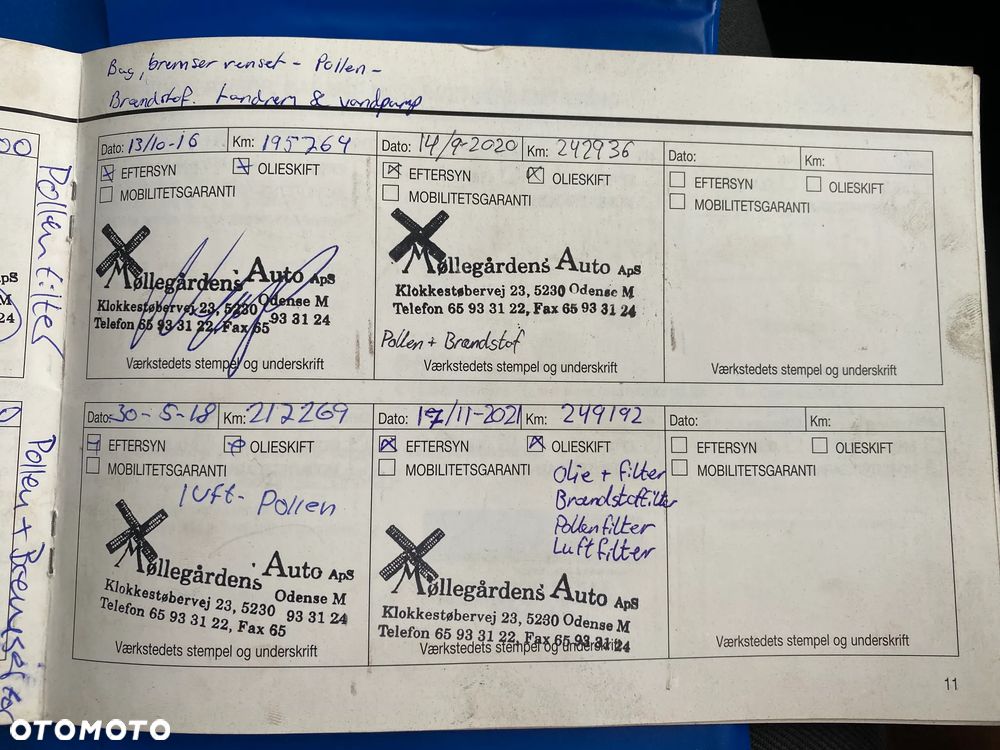 Bag, bremser renset - Pollen -
Brændstof. tandrem & vandpump
Dato: 13/10-16 Km: 195264
EFTERSYN OLIESKIFT
MOBILITETSGARANTI
Møllegårdens Auto ApS
Klokkestøbervej 23, 5230 Odense M
Telefon 65 93 31 22, Fax 65 93 31 24
Værkstedets stempel og underskrift
Dato: 14/9-2020 Km: 242936
EFTERSYN OLIESKIFT
MOBILITETSGARANTI
Møllegårdens Auto ApS
Klokkestøbervej 23, 5230 Odense M
Telefon 65 93 31 22, Fax 65 93 31 24
Pollen + Brændstof
Værkstedets stempel og underskrift
Dato: Km:
EFTERSYN OLIESKIFT
MOBILITETSGARANTI
Værkstedets stempel og underskrift
Dato: 30-5-18 Km: 212269
EFTERSYN OLIESKIFT
MOBILITETSGARANTI
luft- Pollen
Møllegårdens Auto ApS
Klokkestøbervej 23, 5230 Odense M
Telefon 65 93 31 22, Fax 65 93 31 24
Værkstedets stempel og underskrift
Dato: 17/11-2021 Km: 249192
EFTERSYN OLIESKIFT
MOBILITETSGARANTI
Olie + filter
Brændstoffilter
Pollenfilter
Luftfilter
Møllegårdens Auto ApS
Klokkestøbervej 23, 5230 Odense M
Telefon 65 93 31 22, Fax 65 93 31 24
Værkstedets stempel og underskrift
Dato: Km:
EFTERSYN OLIESKIFT
MOBILITETSGARANTI
Værkstedets stempel og underskrift
11
Pollenfilter
Pollen +
OTOMOTO